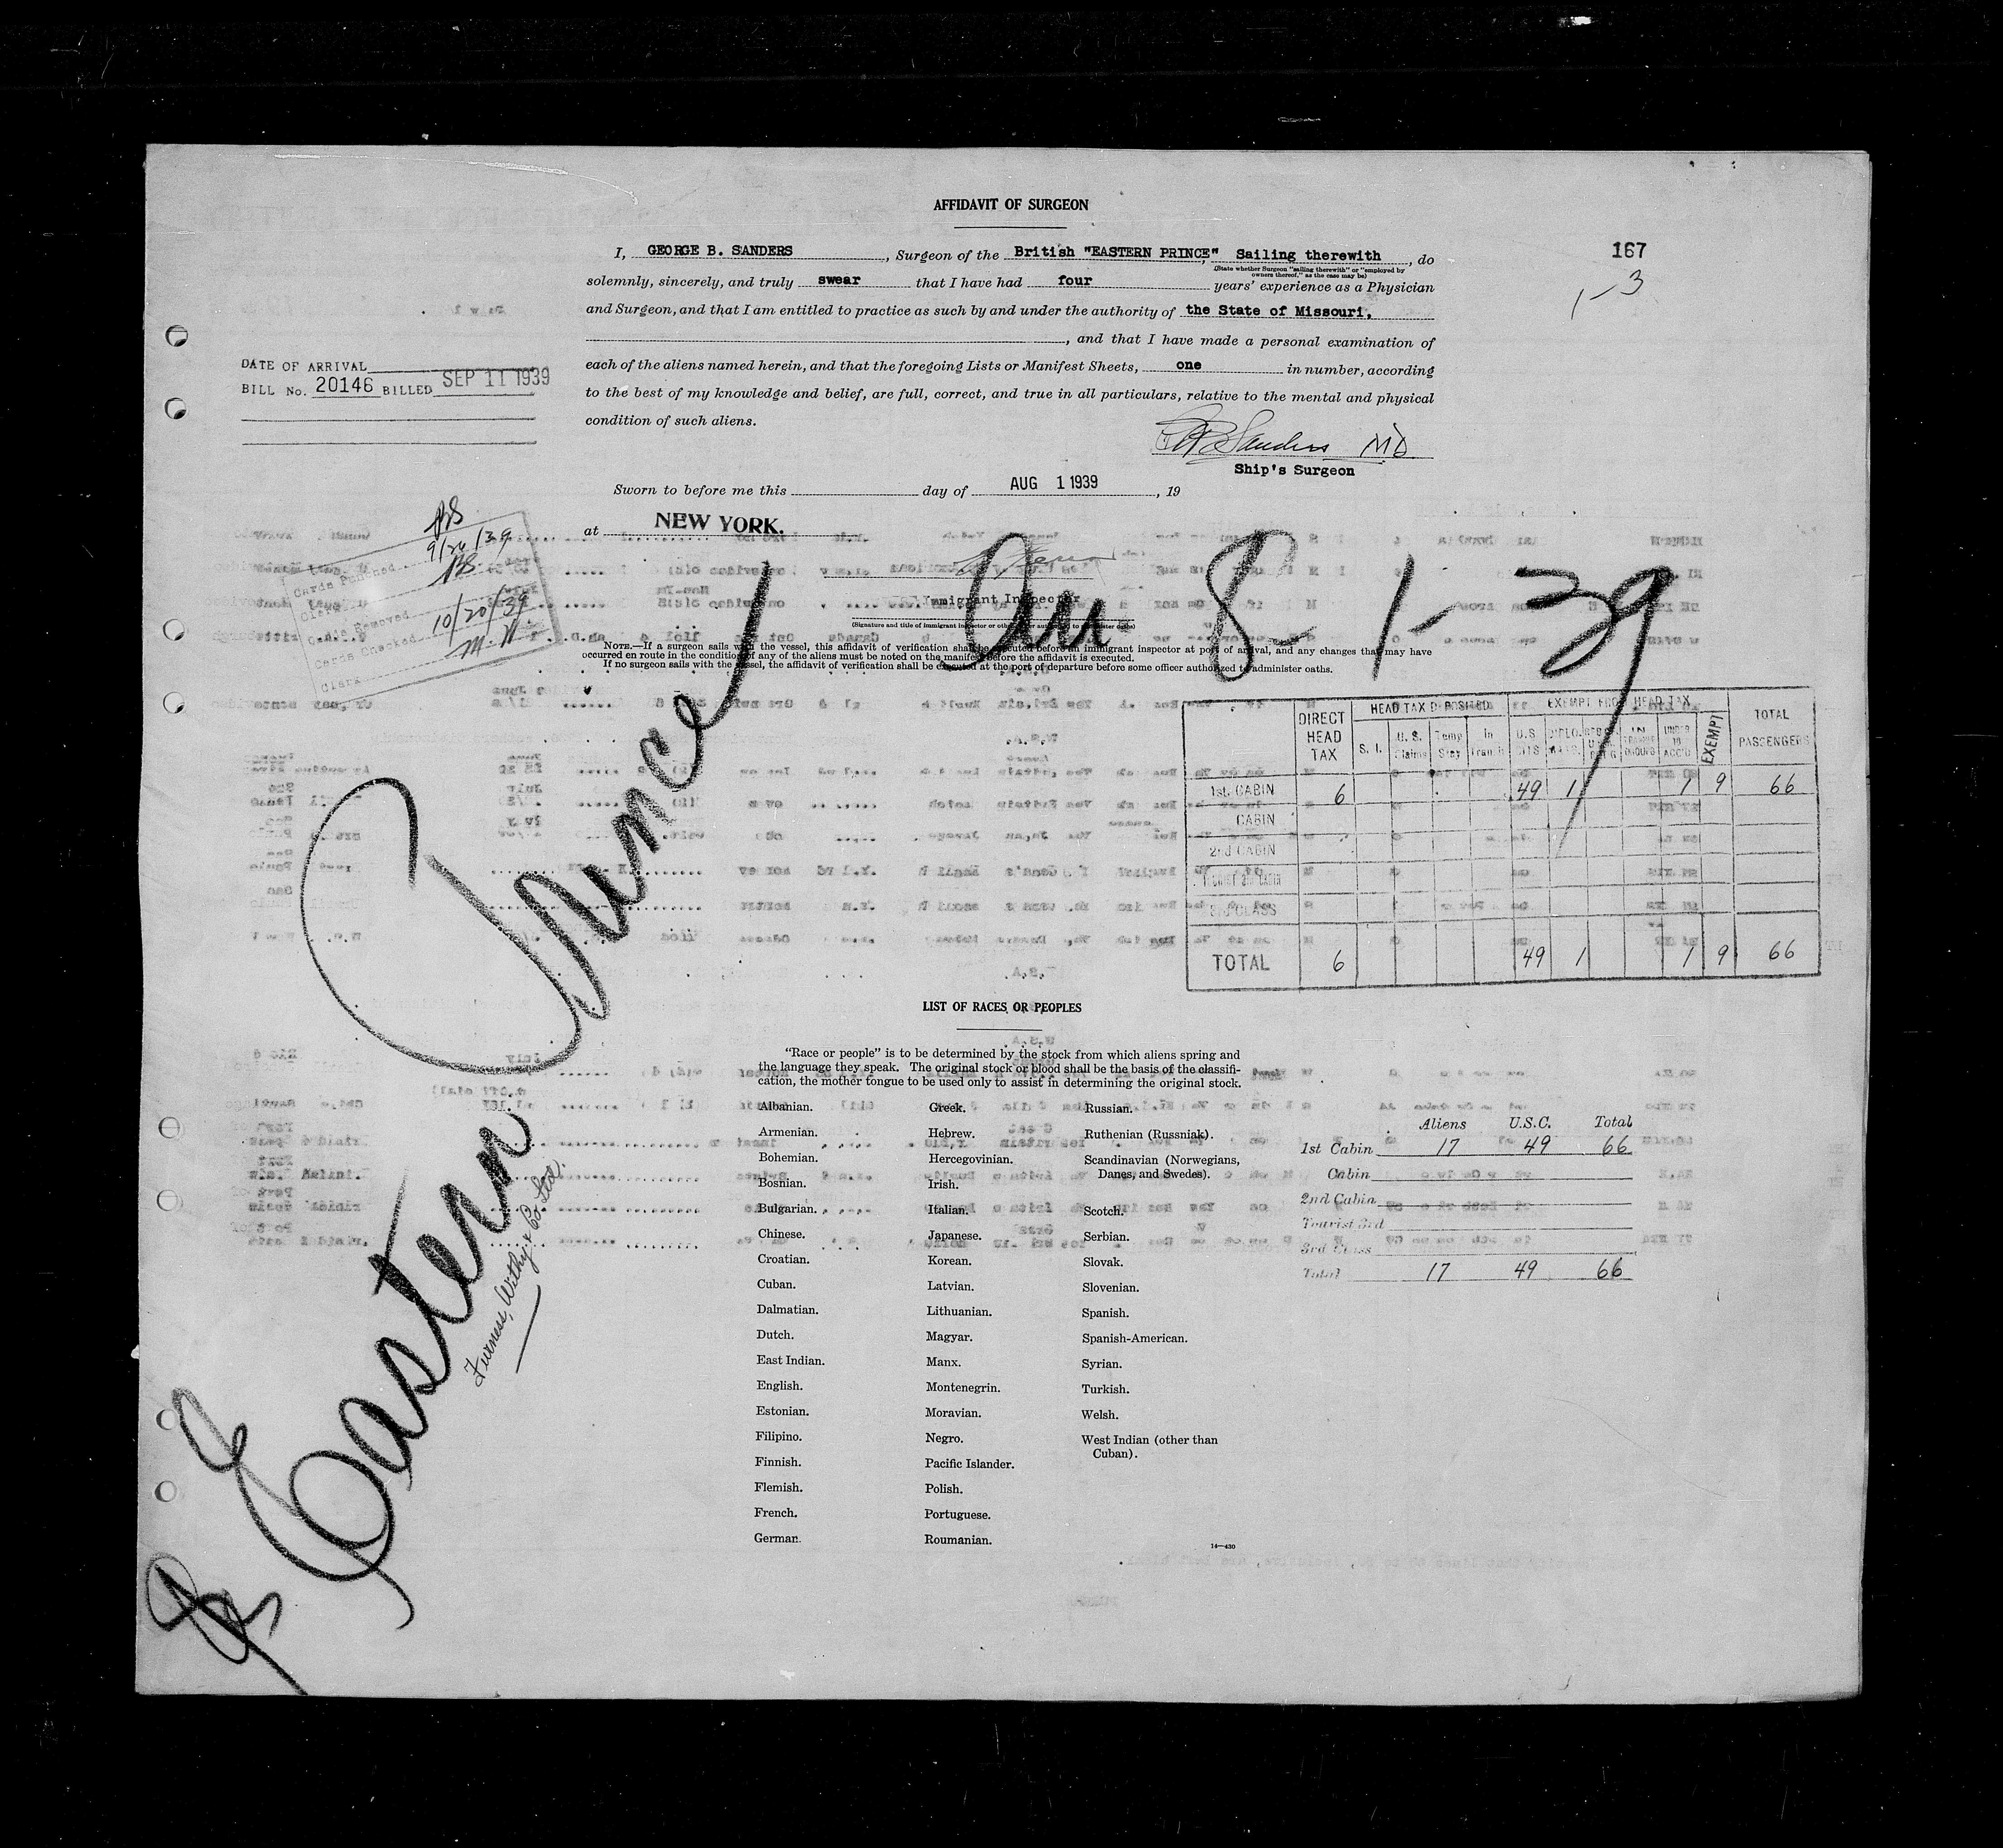 AFFIDAVIT OF SURGEON
I, GEORGE B. SANDERS, Surgeon of the British "EASTERN PRINCE", Sailing therewith, do
(State whether Surgeon "sailing therewith" or "employed by owners thereof," as the case may be)
167
1-3
solemnly, sincerely, and truly swear that I have had four years' experience as a Physician
and Surgeon, and that I am entitled to practice as such by and under the authority of the State of Missouri,
, and that I have made a personal examination of
each of the aliens named herein, and that the foregoing Lists or Manifest Sheets, one in number, according
to the best of my knowledge and belief, are full, correct, and true in all particulars, relative to the mental and physical
condition of such aliens.
DATE OF ARRIVAL
BILL No. 20146 BILLED SEP 11 1939
Sanders MD
Ship's Surgeon
Sworn to before me this day of AUG 1 1939, 19
at NEW YORK.
Immigrant Inspector
(Signature and title of immigrant inspector or other officer authorized to administer oaths)
9/26/39
Cards Punched
Clerk
Removed
Cards Checked 10/20/39
Clerk M.N.
8-1-39
NOTE.—If a surgeon sails with the vessel, this affidavit of verification shall be executed before an immigrant inspector at port of arrival, and any changes that may have
occurred en route in the condition of any of the aliens must be noted on the manifest before the affidavit is executed.
If no surgeon sails with the vessel, the affidavit of verification shall be executed at the port of departure before some officer authorized to administer oaths.
DIRECT HEAD TAX
HEAD TAX DEPOSITED
EXEMPT FROM HEAD TAX
TOTAL PASSENGERS
S. I. U. S. Claims Temp Stay In Transit U.S. CITS DIPLOMATS UNDER 16 ACC'D EXEMPT
1st. CABIN 6 49 1 1 9 66
CABIN
2nd CABIN
3rd CLASS
TOTAL 6 49 1 1 9 66
Eastern Prince
Furness, Withy & Co. Ltd.
LIST OF RACES OR PEOPLES
"Race or people" is to be determined by the stock from which aliens spring and
the language they speak. The original stock or blood shall be the basis of the classifi-
cation, the mother tongue to be used only to assist in determining the original stock.
Albanian.
Armenian.
Bohemian.
Bosnian.
Bulgarian.
Chinese.
Croatian.
Cuban.
Dalmatian.
Dutch.
East Indian.
English.
Estonian.
Filipino.
Finnish.
Flemish.
French.
German.
Greek.
Hebrew.
Hercegovinian.
Irish.
Italian.
Japanese.
Korean.
Latvian.
Lithuanian.
Magyar.
Manx.
Montenegrin.
Moravian.
Negro.
Pacific Islander.
Polish.
Portuguese.
Roumanian.
Russian.
Ruthenian (Russniak).
Scandinavian (Norwegians,
Danes, and Swedes).
Scotch.
Serbian.
Slovak.
Slovenian.
Spanish.
Spanish-American.
Syrian.
Turkish.
Welsh.
West Indian (other than
Cuban).
14—430
Aliens U.S.C. Total
1st Cabin 17 49 66
Cabin
2nd Cabin
Tourist 3rd
3rd Class
Total 17 49 66